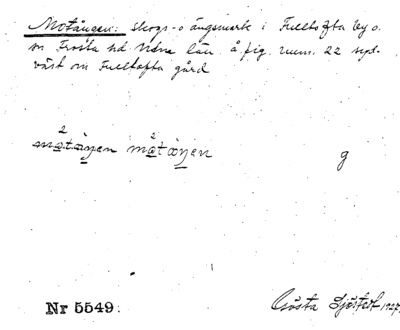 Motången: skogs- o ängsmark i Fulltofta by o.
sn Frosta hd Mdra län. å fig. num. 22 syd-
väst om Fulltofta gård
2 2
matåŋen matåŋen g
Nr 5549. Gösta Sjöstedt 1927.